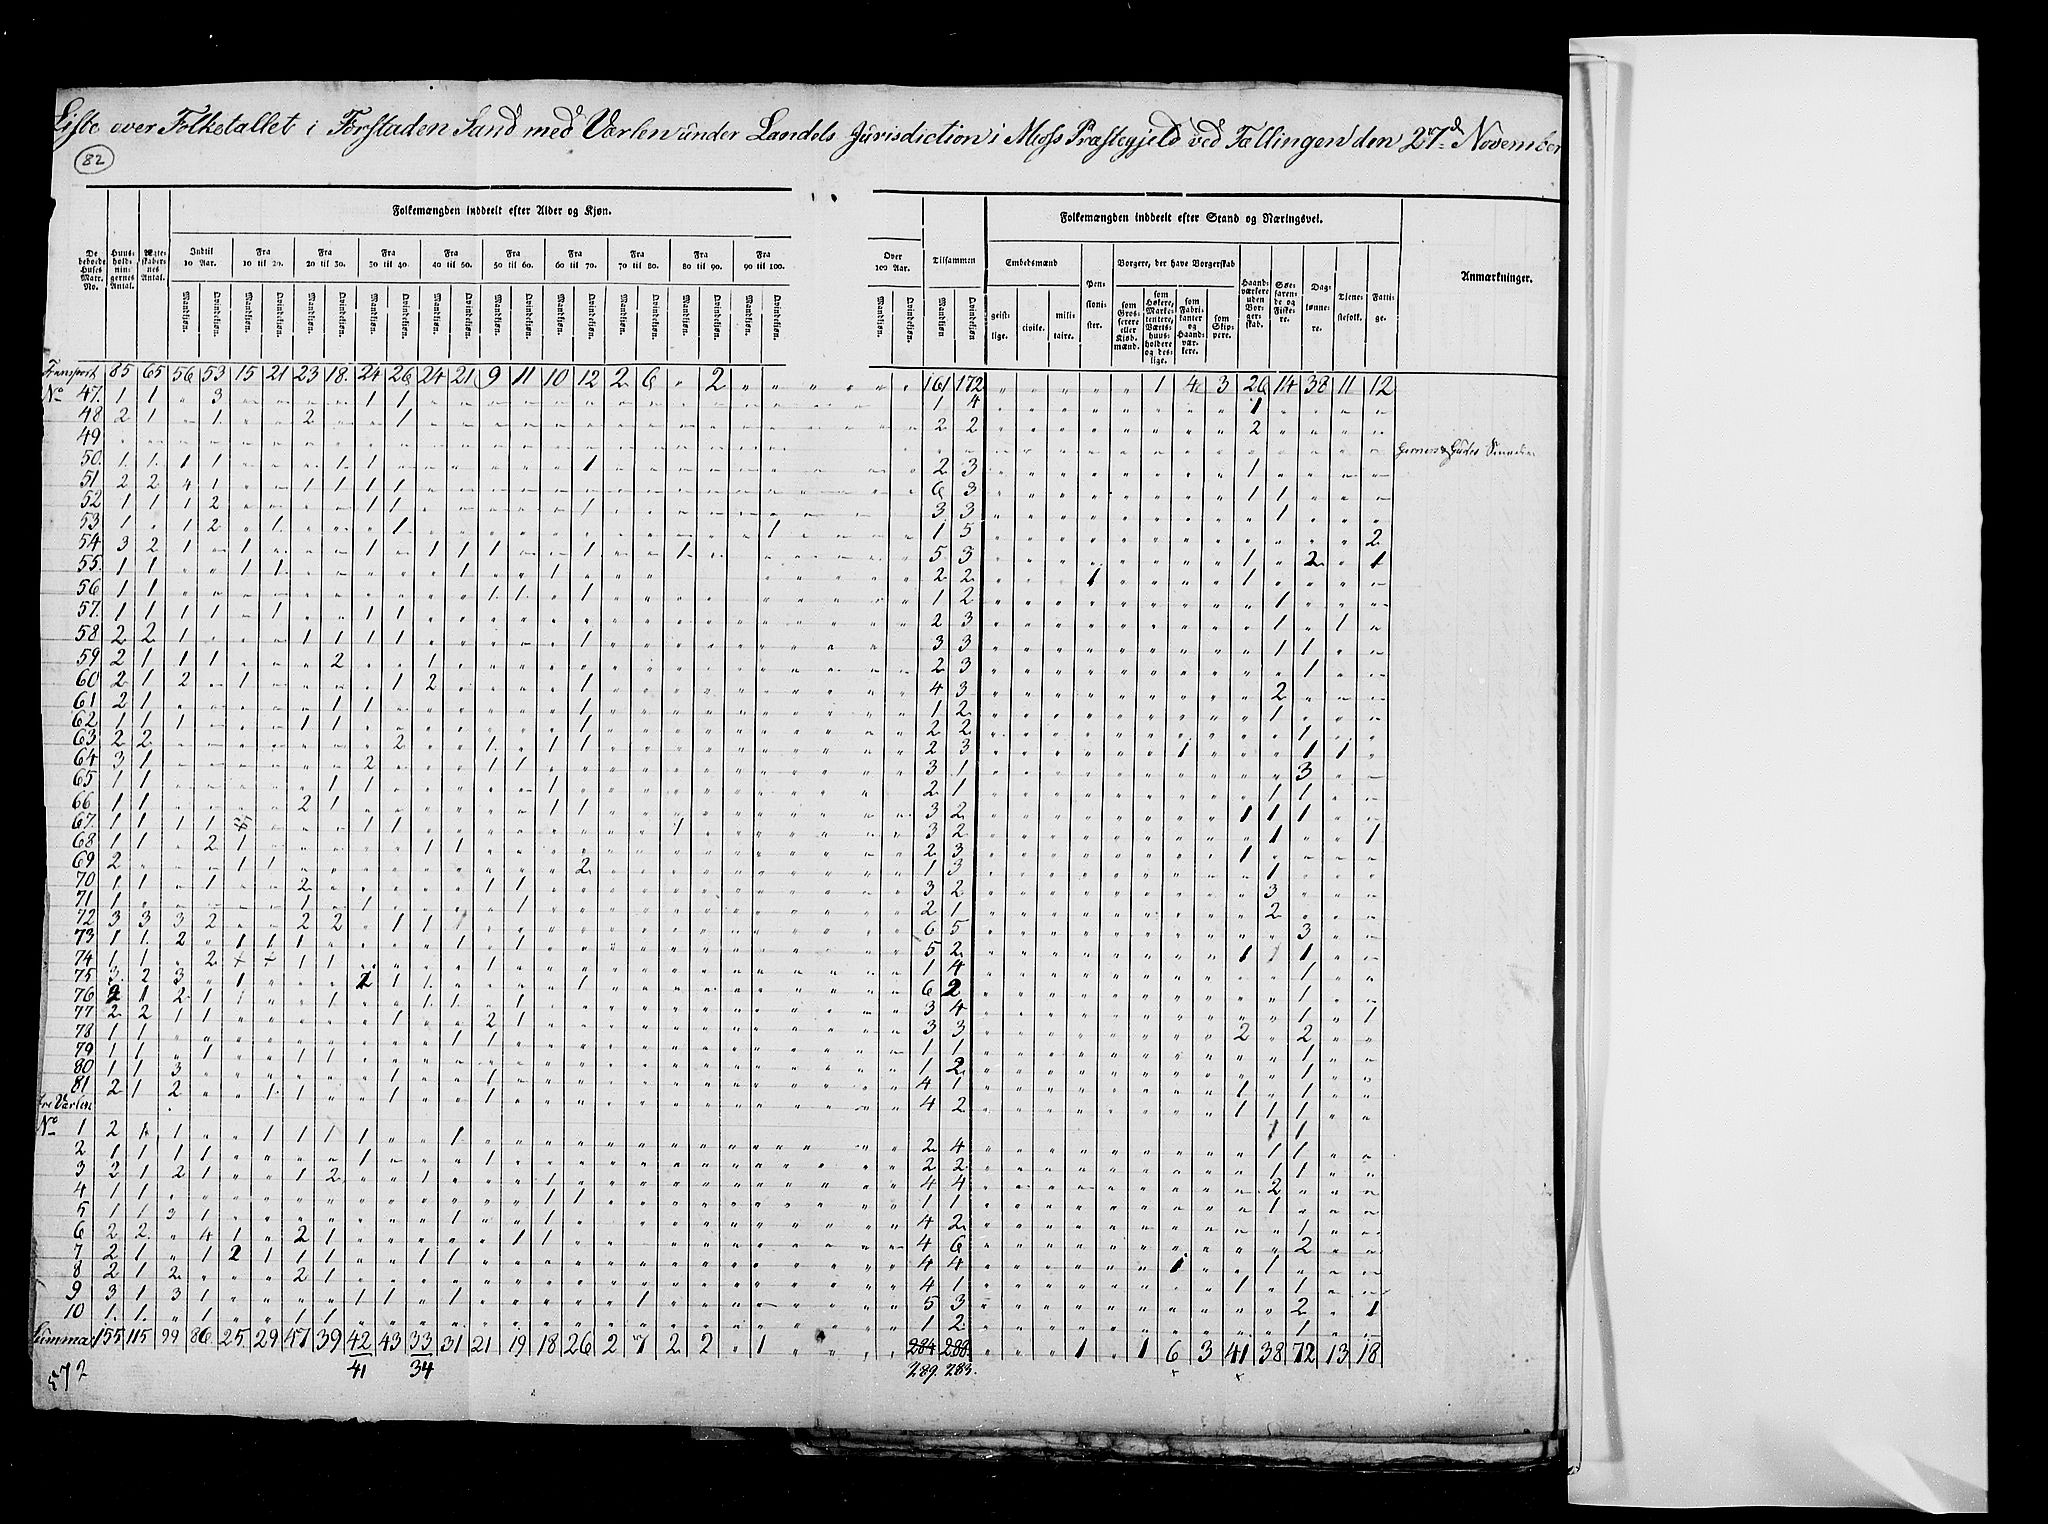 Liste over Folketallet i Forstaden Sand med Værlen under Landets Jurisdiction i Moss Præstegjeld ved Tællingen den 27d November
82
Folkemængden inddeelt efter Alder og Kjøn.
Folkemængden inddeelt efter Stand og Næringsvei.
De beboede Huses Matr. No.
Huusholdningernes Antal.
Ægteskabernes Antal.
Indtil 10 Aar.
Fra 10 til 20.
Fra 20 til 30.
Fra 30 til 40.
Fra 40 til 50.
Fra 50 til 60.
Fra 60 til 70.
Fra 70 til 80.
Fra 80 til 90.
Fra 90 til 100.
Over 100 Aar.
Tilsammen
Mandkjøn. Qvindekjøn.
Embedsmænd
geistlige. civile. militaire.
Pensionister.
Borgere, der have Borgerskab
som Grosserere eller Kjøbmænd.
som Høkere, Marketentere, Vertshuusholdere og deslige.
som Fabrikanter og Haandværkere.
som Skippere.
Haandværkere uden Borgerskab.
Søefarende og Fiskere.
Dagslønnere.
Tjenestefolk.
Fattige.
Anmærkninger.
Transport 85 65 56 53 15 21 23 18 24 26 24 21 9 11 10 12 2 6 " 2 " " " " 161 172 " " " " " 1 4 3 26 14 38 11 12
No 47. 1 1 " 3 1 1 1 4 1
48 2 1 " 1 2 1 2 2 2
49
50. 1 1 1 1 1 1 1 2 3 1
51 2 2 4 1 1 1 1 1 6 3 1 1
52 1 1 1 2 1 1 1 3 3 1
53 1 " 1 2 " 1 1 1 1 5 2
54 3 2 1 " 1 1 1 1 1 1 1 5 3 1 2 1
55. 1 1 1 1 1 1 2 2 1 1
56 1 1 1 1 1 1 2 1
57. 1 1 1 1 " 1 1 1 2 3 1 1
58 2 2 1 1 1 1 1 1 3 3 1 1
59 2 1 1 1 2 1 2 3 1
60 2 1 2 " 1 1 2 1 4 3 2
61 2 1 1 1 1 1 2 1
62 1 1 1 1 1 1 2 2 1
63 2 2 2 1 1 1 2 3 1 1 1
64 3 1 2 1 1 3 1 3
65 1 1 1 1 1 2 1 1 1
66 1 1 2 1 1 1 3 2 1 1 1
67. 1 1 1 1 1 1 1 3 2 1 1
68 1 1 " 2 1 1 1 2 3 1
69 2 1 1 2 1 3 1
70 1 1 " 1 2 1 1 3 2 3
71 1 1 1 1 2 1 2
72 3 3 3 2 2 2 1 1 1 6 5 3
73 1 1 2 " 1 1 1 1 1 5 2 1 1 1
74 1 1 " 2 1 1 1 1 4 1
75 3 2 3 " 1 2 1 1 1 6 2 1
76 2 1 2 1 1 1 1 1 1 3 4 1 1
77 2 2 1 1 1 2 1 3 3 2 2
78 1 1 1 1 1 1 1
79 1 1 " 1 1 1 1 2 1
80 1 1 3 1 1 4 1 1 1
81 2 1 2 1 1 1 1 4 2 1 1 1
No 1 2 1 1 1 1 1 1 1 2 4 1 1
2 1 1 1 1 1 1 2 2 1 1
3 2 1 2 1 1 2 1 1 4 4 1 1
4 1 1 1 1 1 1 2
5 1 1 3 1 1 1 4 2 1
6 2 2 " 4 1 " 2 1 1 1 4 6 1
7 2 1 " 1 2 1 1 1 1 1 4 4 2
8 2 1 2 2 1 4 1 1 1
9 3 1 3 1 1 1 1 1 5 3 1 1
10 1 1 " 1 1 1 1 2 2 1
Summa 155 115 99 86 25 29 47 39 42 43 33 31 21 19 18 26 2 7 2 2 " 1 " " 284 288 " " " 1 " 1 6 3 41 38 72 13 18
572 41 34 289. 283.